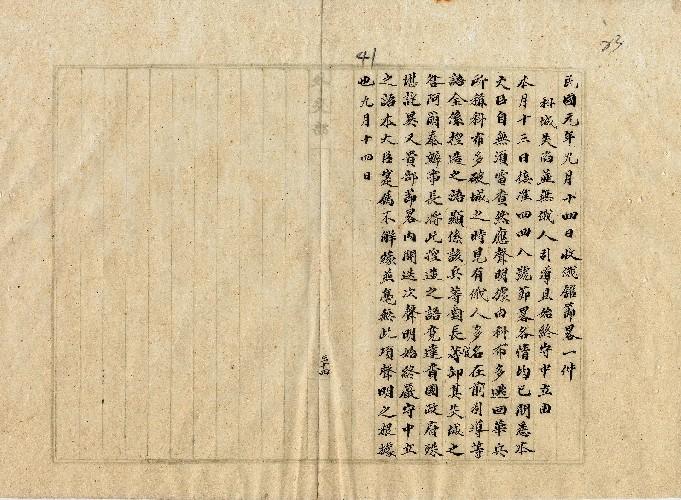 23
41
民國元年九月十四日收俄館節畧一件
科城失陷並無俄人引導且始終守中立由
本月十三日接准四四八號節畧各情均已閱悉本
大臣自無須置喙然應聲明據由科布多逃回華兵
所稱科布多破城之時見有俄人多名在前引導等
語全係捏造之語顯係該兵等會長等卸其失城之
咎阿爾泰辦事長官將此捏造之語竟達貴國政府殊
堪詫異又貴部節畧內開迭次聲明始終嚴守中立
之語本大臣寔為不解緣無此項聲明之根據
也九月十四日
外交部
三十四